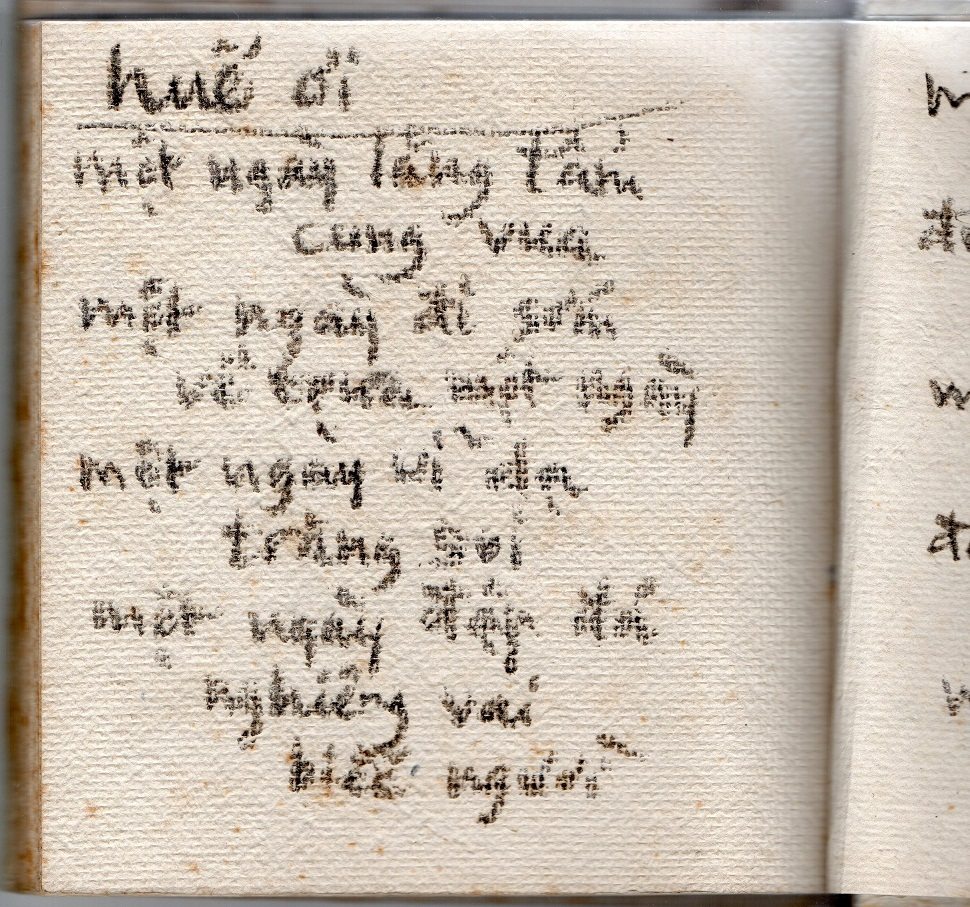 huế ơi
một ngày lăng tẩm
cung vua
một ngày đi sớm
về trưa một ngày
một ngày vĩ dạ
trăng soi
một ngày đập đá
nghiêng vai
người